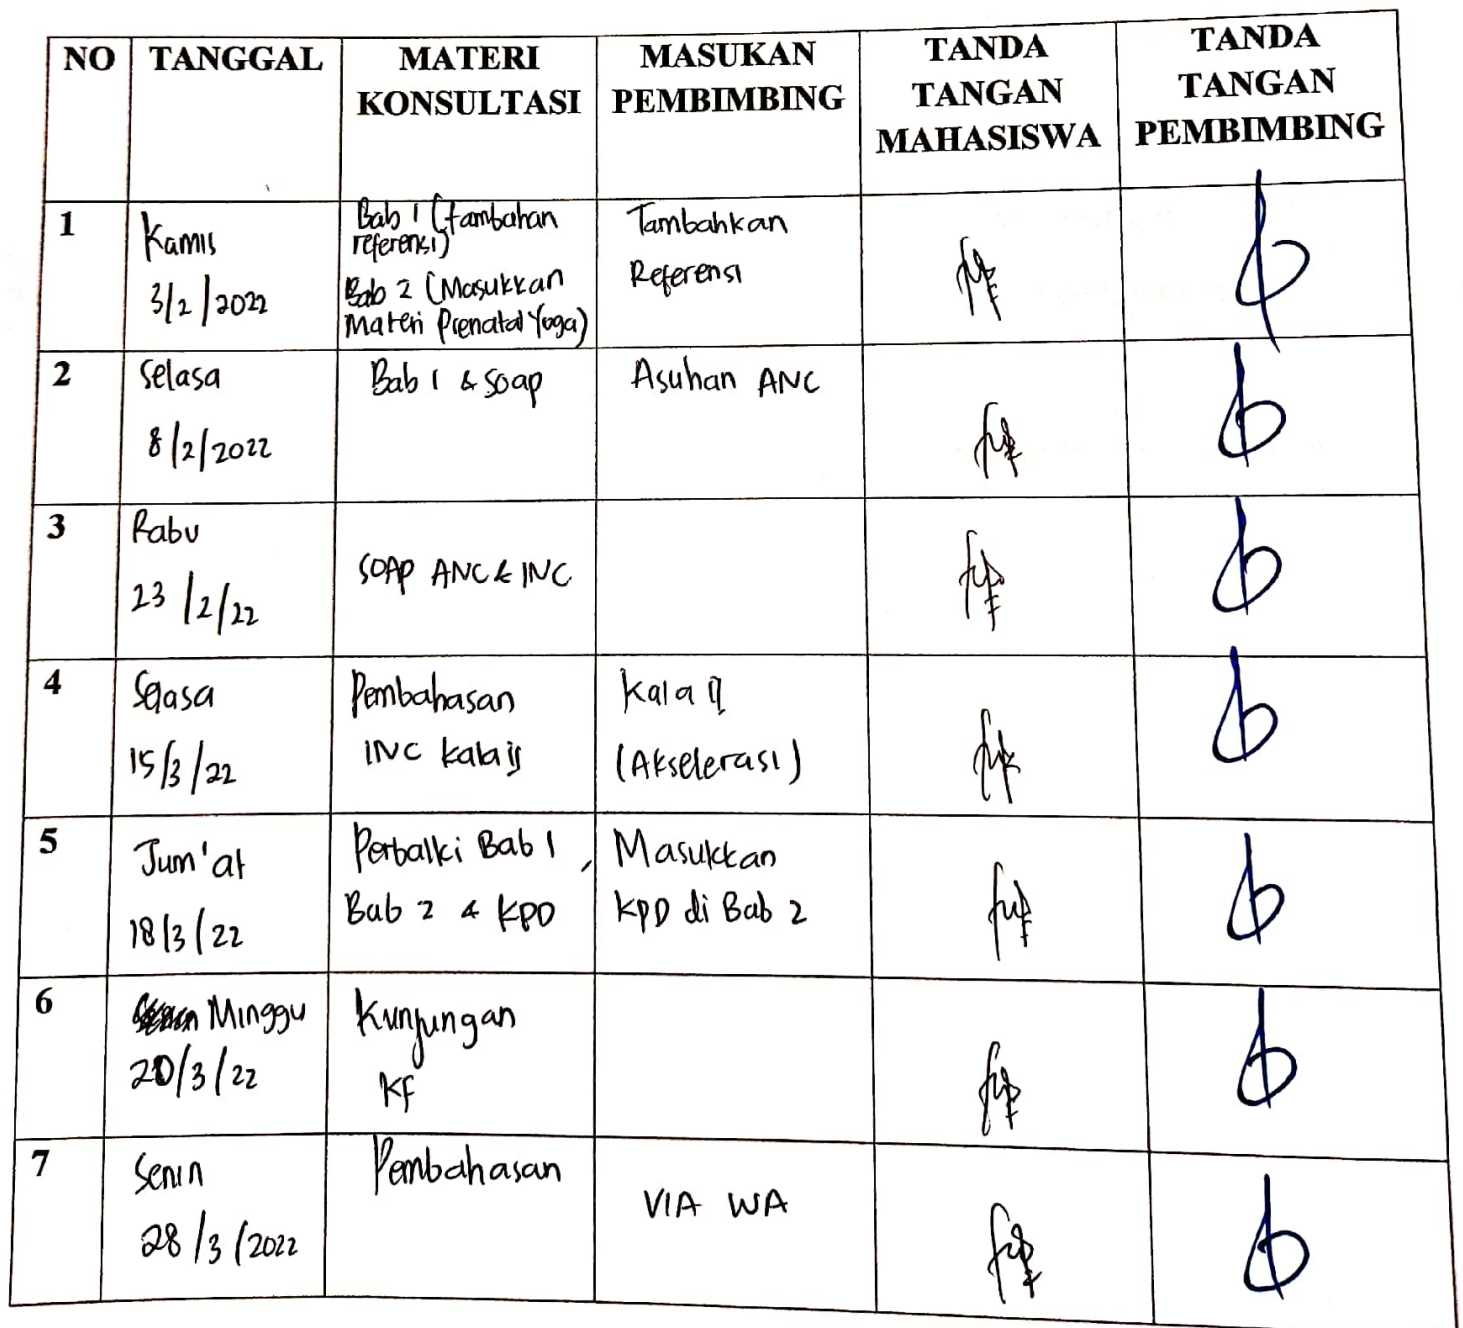 NO TANGGAL MATERI KONSULTASI MASUKAN PEMBIMBING TANDA TANGAN MAHASISWA TANDA TANGAN PEMBIMBING
1
Kamis
3/2/2022
Bab 1 (tambahan
referensi)
Bab 2 (Masukkan
Materi Prenatal Yoga)
Tambahkan
Referensi
2
Selasa
8/2/2022
Bab 1 & Soap
Asuhan ANC
3
Rabu
23/2/22
SOAP ANC & INC
4
Selasa
15/3/22
Pembahasan
INC Kala ij
Kala II
(Akselerasi)
5
Jum'at
18/3/22
Perbaiki Bab 1,
Bab 2 & KPD
Masukkan
KPD di Bab 2
6
Minggu
20/3/22
Kunjungan
KF
7
Senin
28/3/2022
Pembahasan
VIA WA